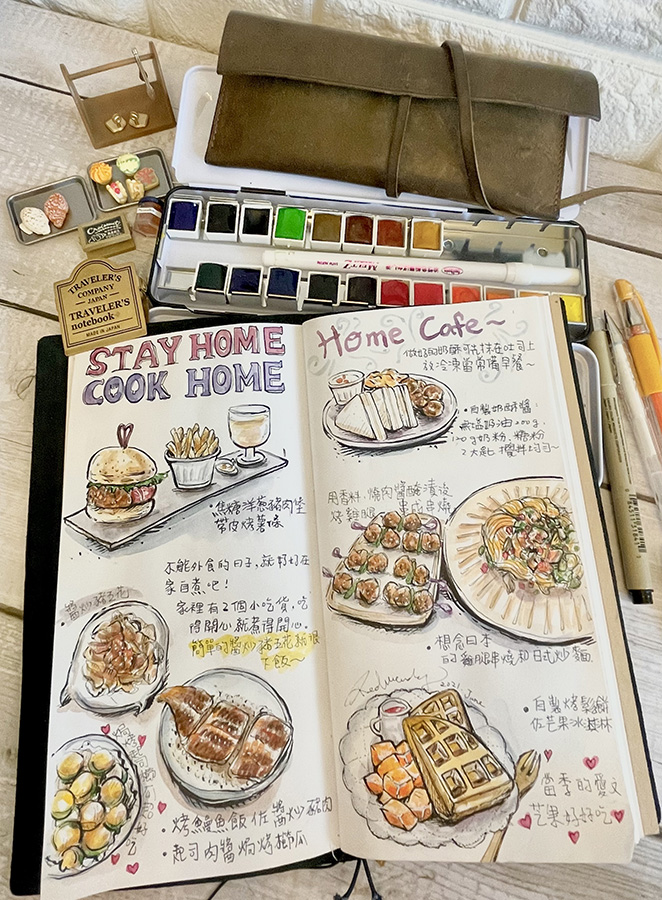 TRAVELER'S
COMPANY
JAPAN
TRAVELER'S
notebook
MADE IN JAPAN
STAY HOME
COOK HOME
•焦糖洋蔥豬肉堡
帶皮烤薯條
不能外食的日子,就好好在
家自煮吧!
家裡有2個小吃貨,吃
得開心就煮得開心。
簡單的醬炒豬五花超級
下飯~
醬炒豬五花
•烤鰻魚飯佐醬炒豬肉
•起司肉醬焗烤櫛瓜
Home Cafe~
做好的奶酥可先抹在吐司上
放冷凍當常備早餐~
•自製奶酥醬:
無鹽奶油200g,
奶粉,糖粉
2大匙
用香料,燒肉醬醃漬後
烤雞腿 串成串燒
•想念日本
的雞腿串燒和日式炒麵
2021 June
•自製烤鬆餅
佐芒果冰淇淋
當季的愛文
芒果好好吃